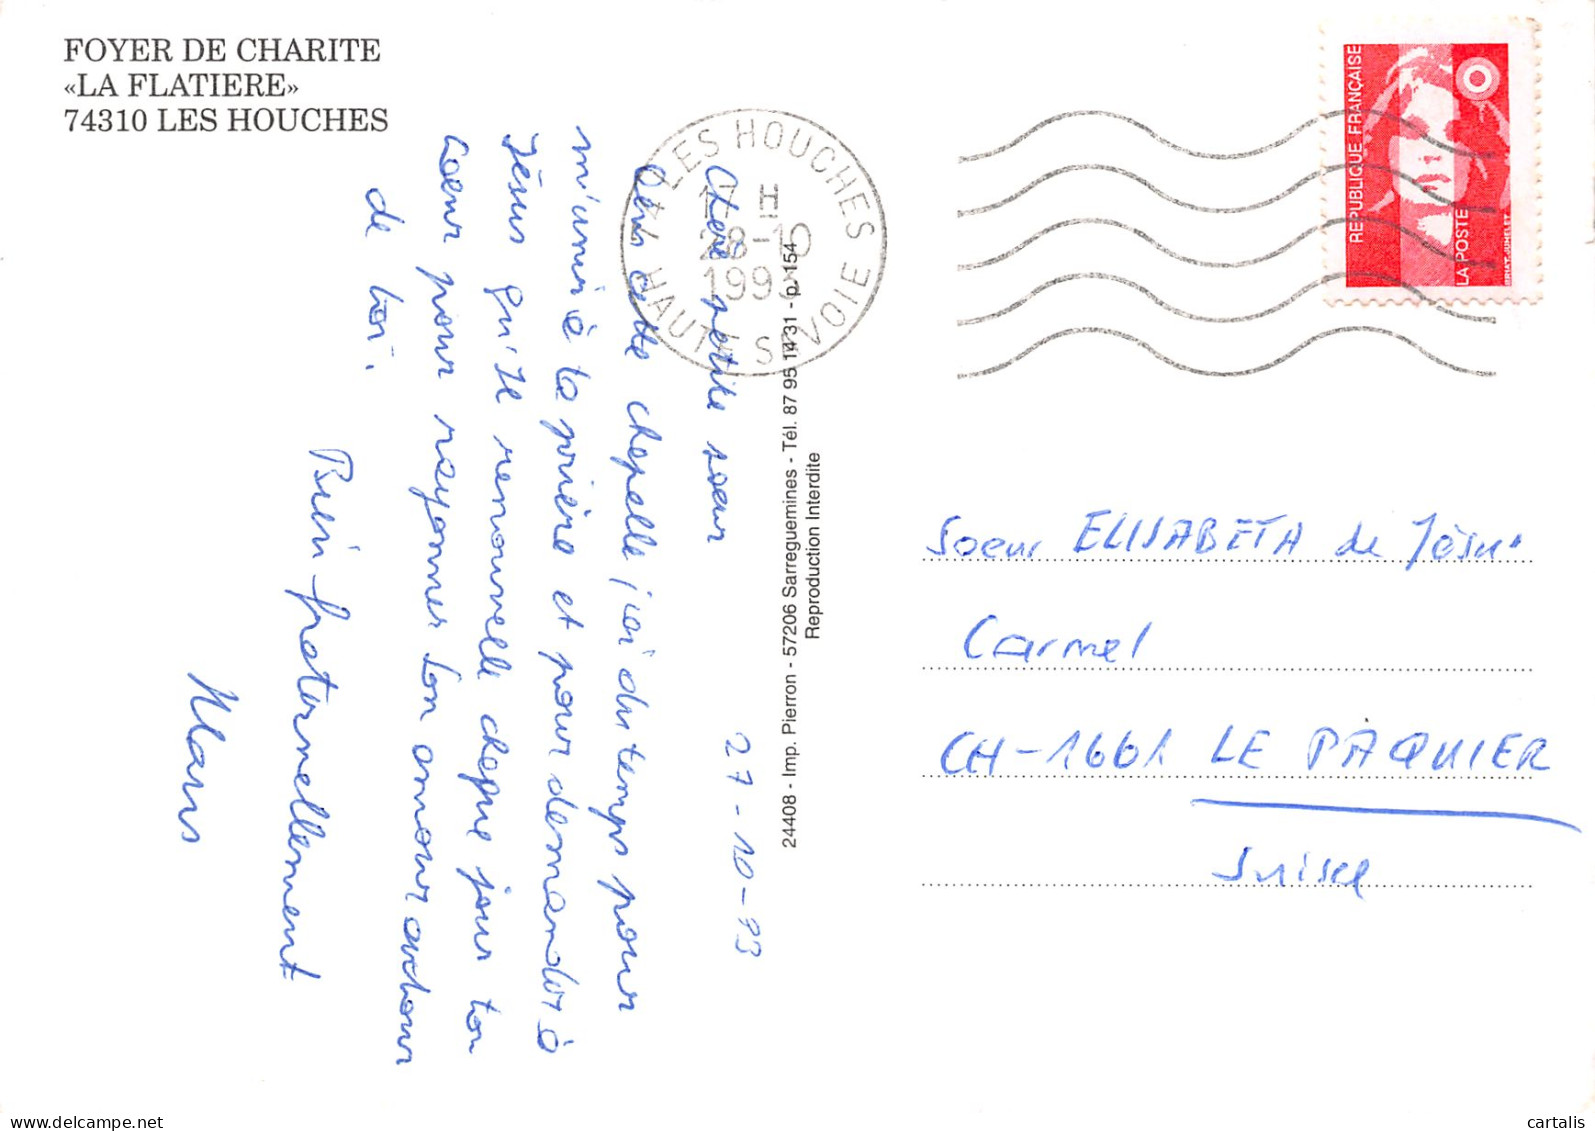 FOYER DE CHARITE
«LA FLATIERE»
74310 LES HOUCHES
27-10-93
Chère petite soeur
Dans cette chapelle j'ai du temps pour
m'unir à la prière et pour demander à
Jésus qu'Il renouvelle chaque jour ton
Coeur pour rayonner ton amour autour
de toi.
Bien fraternellement
Klaus
24408 - Imp. Pierron - 57206 Sarreguemines - Tél. 87 95 14 31 - p. 154
Reproduction Interdite
74 LES HOUCHES
H
28-10
1993
HAUTE SAVOIE
REPUBLIQUE FRANÇAISE
LA POSTE
BRIAT-JUMELET
Soeur ELISABETA de Jésus
Carmel
CH-1661 LE PÂQUIER
Suisse
www.delcampe.net
cartalis